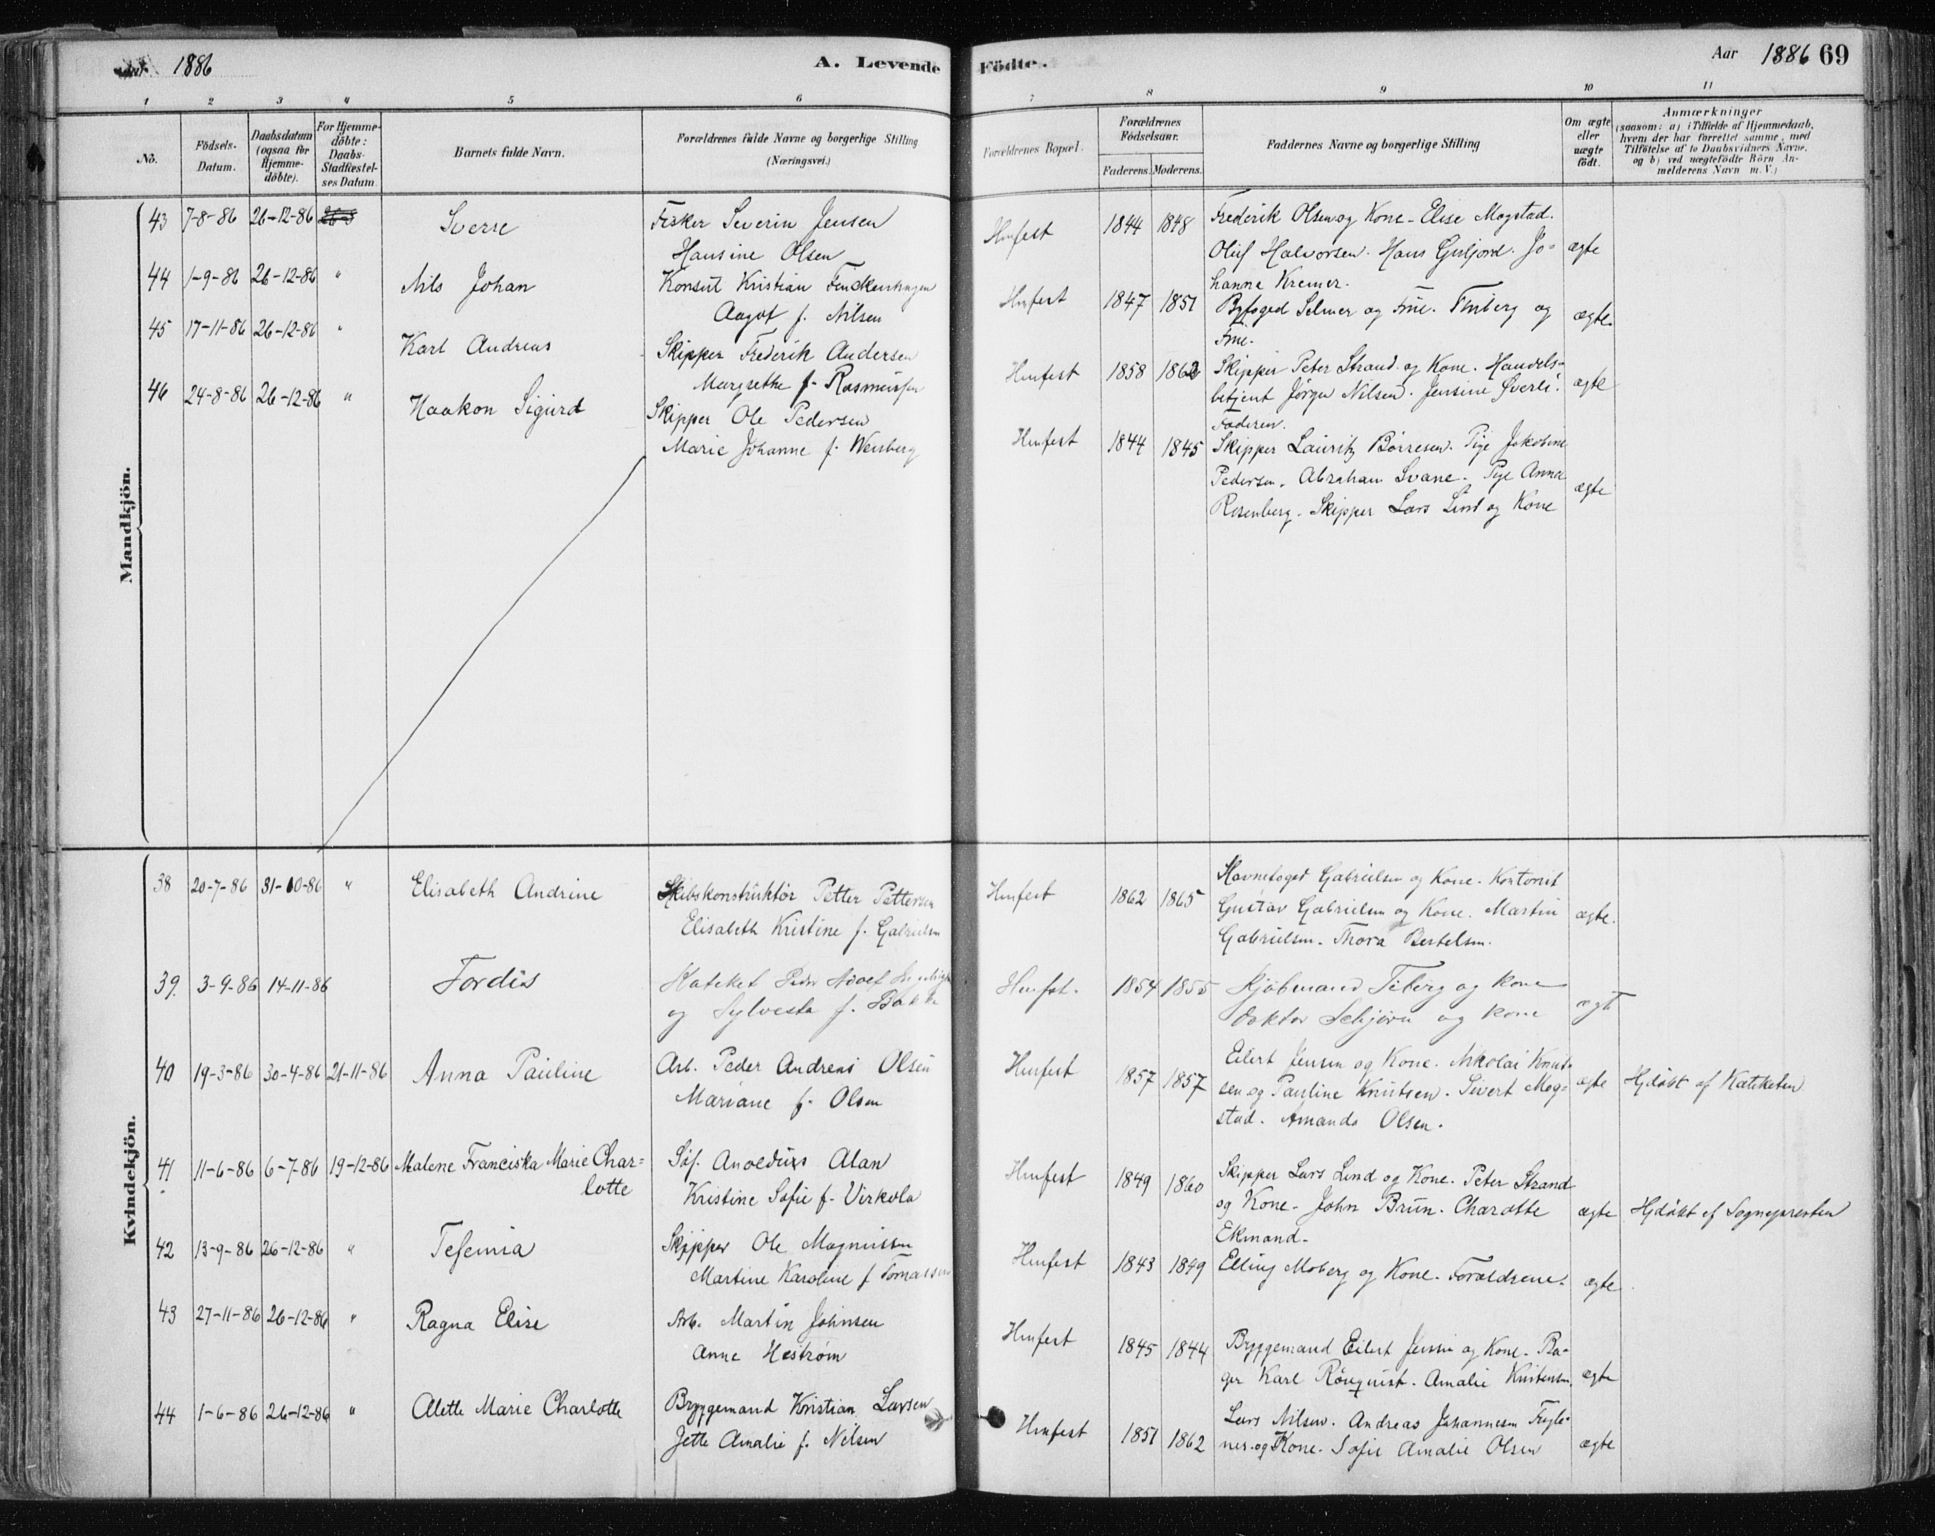 1886 A. Levende Födte. Aar 1886 69
1 2 3 4 5 6 7 8 9 10 11
No. Födsels-Datum. Daabsdatum (ogsaa for Hjemmedöbte). For Hjemmedöbte: Daabs-Stadfæstelses Datum Barnets fulde Navn. Forældrenes fulde Navne og borgerlige Stilling (Næringsvei.) Forældrenes Bopæl. Forældrenes Födselsaar. Faderens. Moderens. Faddernes Navne og borgerlige Stilling Om ægte eller uægte födt. Anmærkninger (saasom: a) i Tilfælde af Hjemmedaab, hvem der har forrettet samme, med Tilföielse af to Daabsvidners Navne, og b) ved uægtefödte Börn Anmelderens Navn m. V.)
Mandkjön.
43 7-8-86 26-12-86 Sverre Fisker Severin Jensen Hmfest 1844 1848 Frederik Olsen og Kone. Elise Mogstad.
Hansine Olsen Oluf Halvorsen. Hans Guljord. Jo- ægte
hanna Kremer.
44 1-9-86 26-12-86 " Nils Johan Konsul Kristian Finckenhagen Hmfest 1847 1851 Byfoged Selmer og Frue. Finberg og ægte
Aagot f. Nilsen Frue.
45 17-11-86 26-12-86 " Karl Andreas Skipper Frederik Andersen Hmfest 1858 1862 Skipper Peter Strand og Kone. Handels-
Margrethe f. Rasmussen betjent Jörgen Nilsen. Jensine Överli. ægte
Faderen.
46 24-8-86 26-12-86 " Haakon Sigurd Skipper Ole Pedersen Hmfest 1844 1845 Skipper Lauritz Börresen. Pige Jakobine
Marie Johanne f. Wensberg Pedersen. Abraham Svane. Pige Anna ægte
Rosenberg. Skipper Lars Lind og Kone
Kvindekjön.
38 20-7-86 31-10-86 " Elisabeth Andrine Skibskonstruktör Petter Pettersen Hmfest 1862 1865 Havnefoged Gabrielsen og Kone. Kontorist
Elisabeth Kristine f. Gabrielsen Gustav Gabrielsen og Kone. Martin ægte.
Gabrielsen. Thora Bertelsen.
39. 3-9-86 14-11-86 Tordis Kateket Peder Adolf Hmfst. 1854 1855 Kjöbmand Tiberg og kone
og Sylvesta f. Bakke doktor Schjörn og kone ægt
40 19-3-86 30-4-86 21-11-86 Anna Pauline Arb. Peder Andreas Olsen Hmfest 1857 1857 Eilert Jensen og Kone. Nikolai Knut-
Mariane f. Olsen sen og Pauline Knutsen. Sivert Mog- ægte Hjdöbt af Kateketen
stad. Amanda Olsen.
41 11-6-86 6-7-86 19-12-86 Malene Franciska Marie Char- Söf. Anoldus Alan Hmfest 1849 1860 Skipper Lars Lind og Kone. Peter Strand
lotte Kristine Sofie f. Virkola og Kone. John Brun. Charotte ægte Hjdöbt af Sognepresten
Ekmand.
42 13-9-86 26-12-86 " Tefemia Skipper Ole Magnussen Hmfest 1843 1849 Elling Moberg og Kone. Forældrene. ægte
Martine Karoline f. Tomassen
43 27-11-86 26-12-86 " Ragna Elise Arb. Martin Johnsen Hmfest 1845 1844 Bryggemand Eilert Jensen og Kone. Ba-
Anne Heström ger Karl Rönquist. Amalie Kristensen. ægte
44 1-6-86 26-12-86 " Alette Marie Charlotte Bryggemand Kristian Larsen Hmfest 1851 1862 Lars Nilsen. Andreas Johannesen Fugle-
Jette Amalie f. Nilsen nes og Kone. Sofie Amalie Olsen ægte